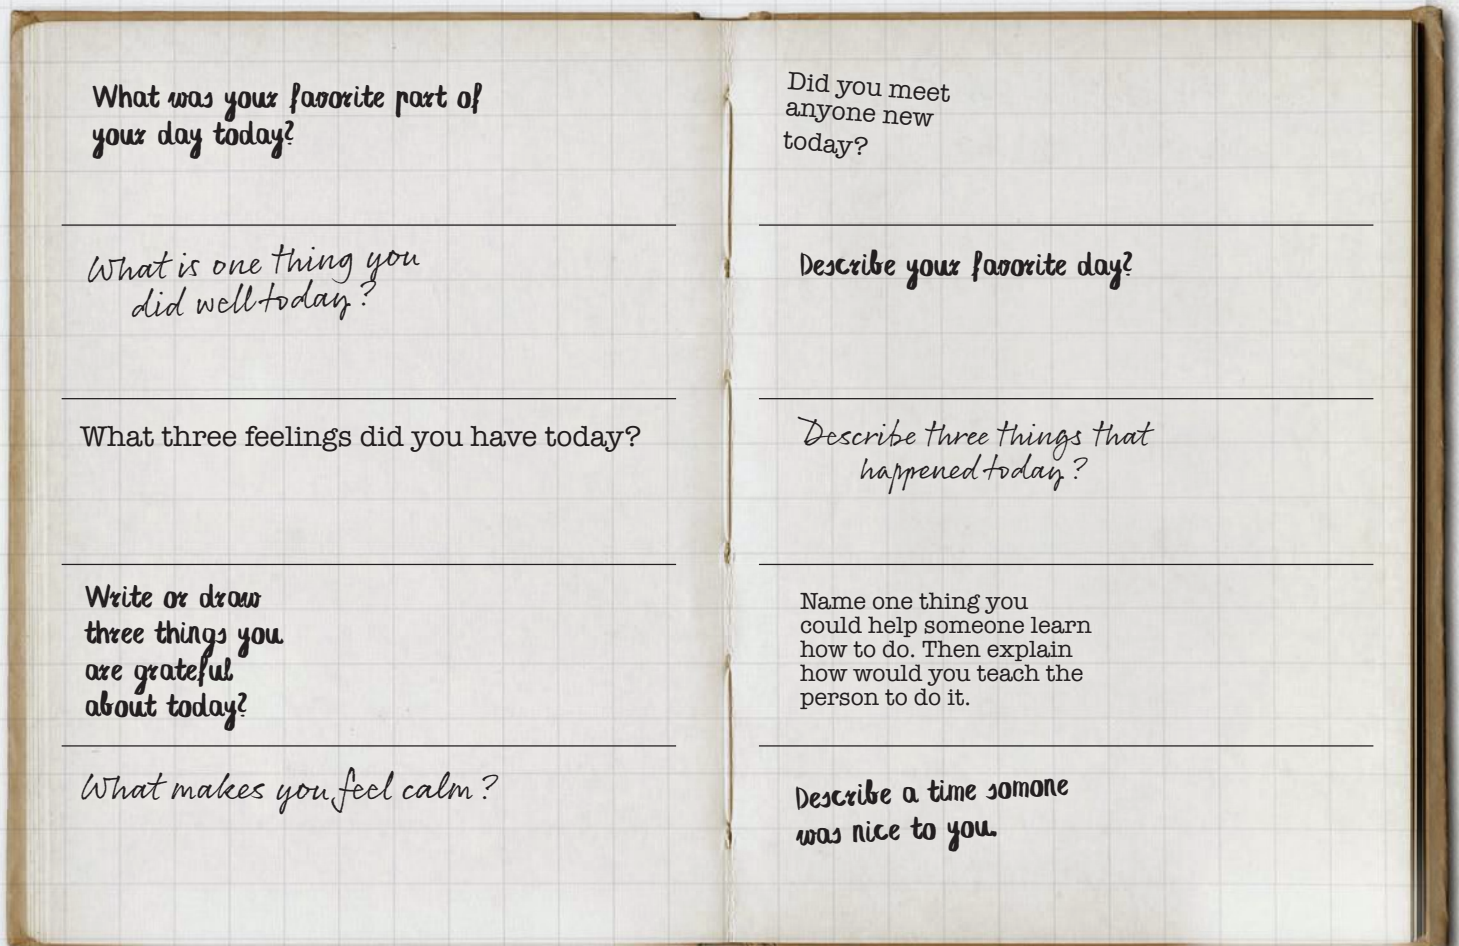 What was your favorite part of
your day today?
What is one thing you
did well today?
What three feelings did you have today?
Write or draw
three things you
are grateful
about today?
What makes you feel calm?
Did you meet
anyone new
today?
Describe your favorite day?
Describe three things that
happened today?
Name one thing you
could help someone learn
how to do. Then explain
how would you teach the
person to do it.
Describe a time somone
was nice to you.